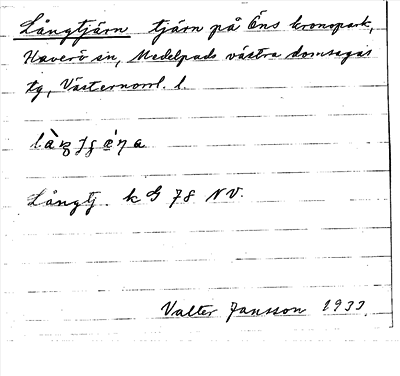 Långtjärn tjärn på Öns kronopark,
Haverö sn, Medelpads västra domsagas
tg, Västernorrl. l.
Långtj. k G 78 NV.
Valter Jansson 1933.